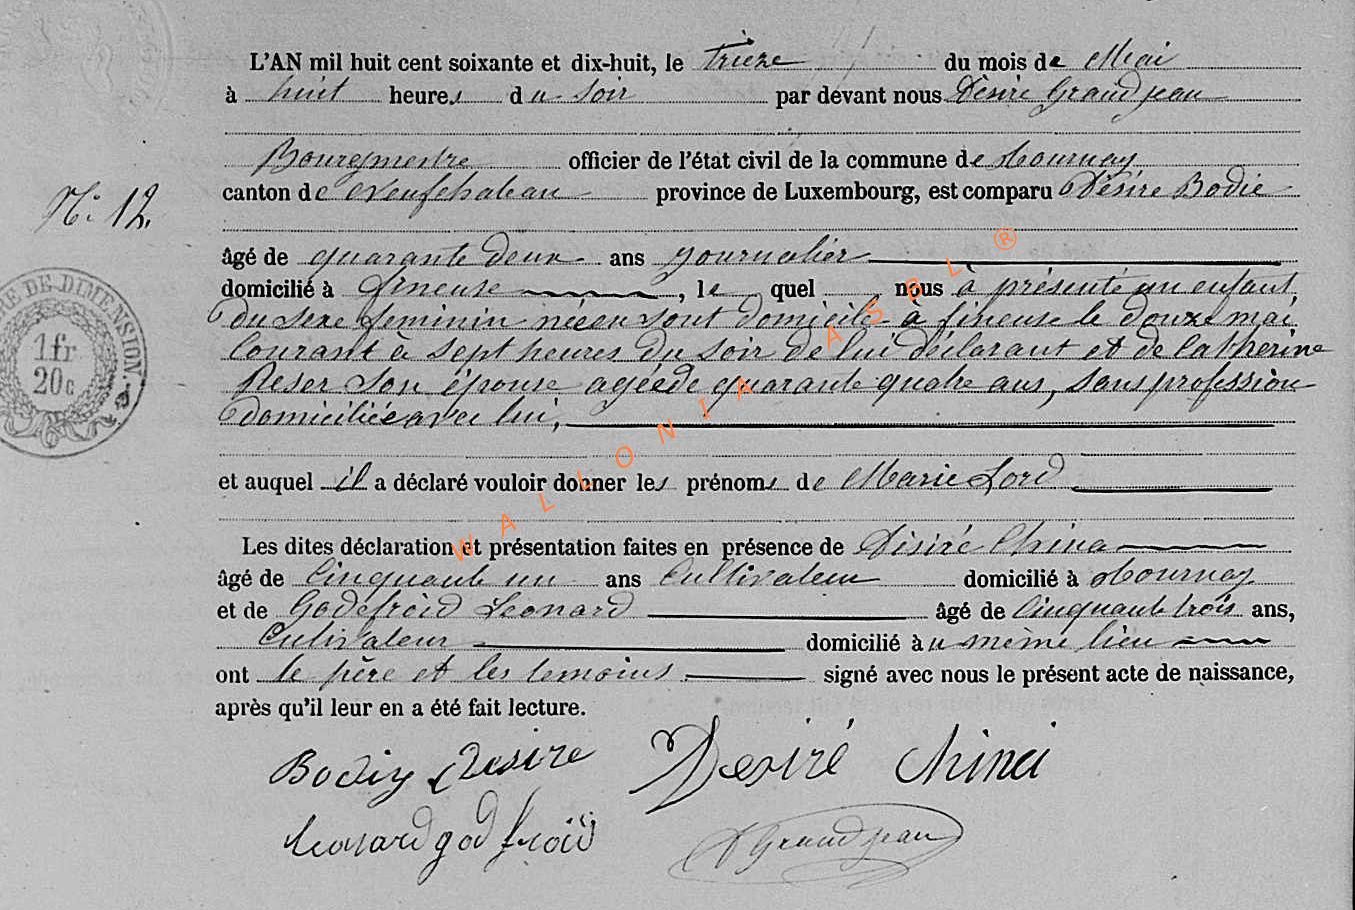 L'AN mil huit cent soixante et dix-huit, le trieze du mois de Mai
à huit heures du soir par devant nous Désiré Grandjean
Bourgmestre officier de l'état civil de la commune de Tournay
N° 12.
canton de Neufchateau province de Luxembourg, est comparu Désiré Bodie
âgé de quarante deux ans journalier
domicilié à Grneuse, le quel nous à présenté un enfant
du sexe feminin née en sont domicile à fineuse le douze mai
Courant à sept heures du soir de lui déclarant et de Catherine
Reser son épouse agée de quarante quatre ans, sans profession
domiciliée avec lui,
et auquel il a déclaré vouloir donner les prénoms de Marie Lord
Les dites déclaration et présentation faites en présence de Désiré China
âgé de Cinquante un ans Cultivateur domicilié à Tournay
et de Godefroid Leonard âgé de Cinquante trois ans,
Cultivateur domicilié àu même lieu
ont le père et les temoins signé avec nous le présent acte de naissance,
après qu'il leur en a été fait lecture.
Bodiy Desire Desiré China
Leonard godfroid
D Grandjean
RE DE DIMENSION.
1 fr
20 c
WALLONIA ASBL ®